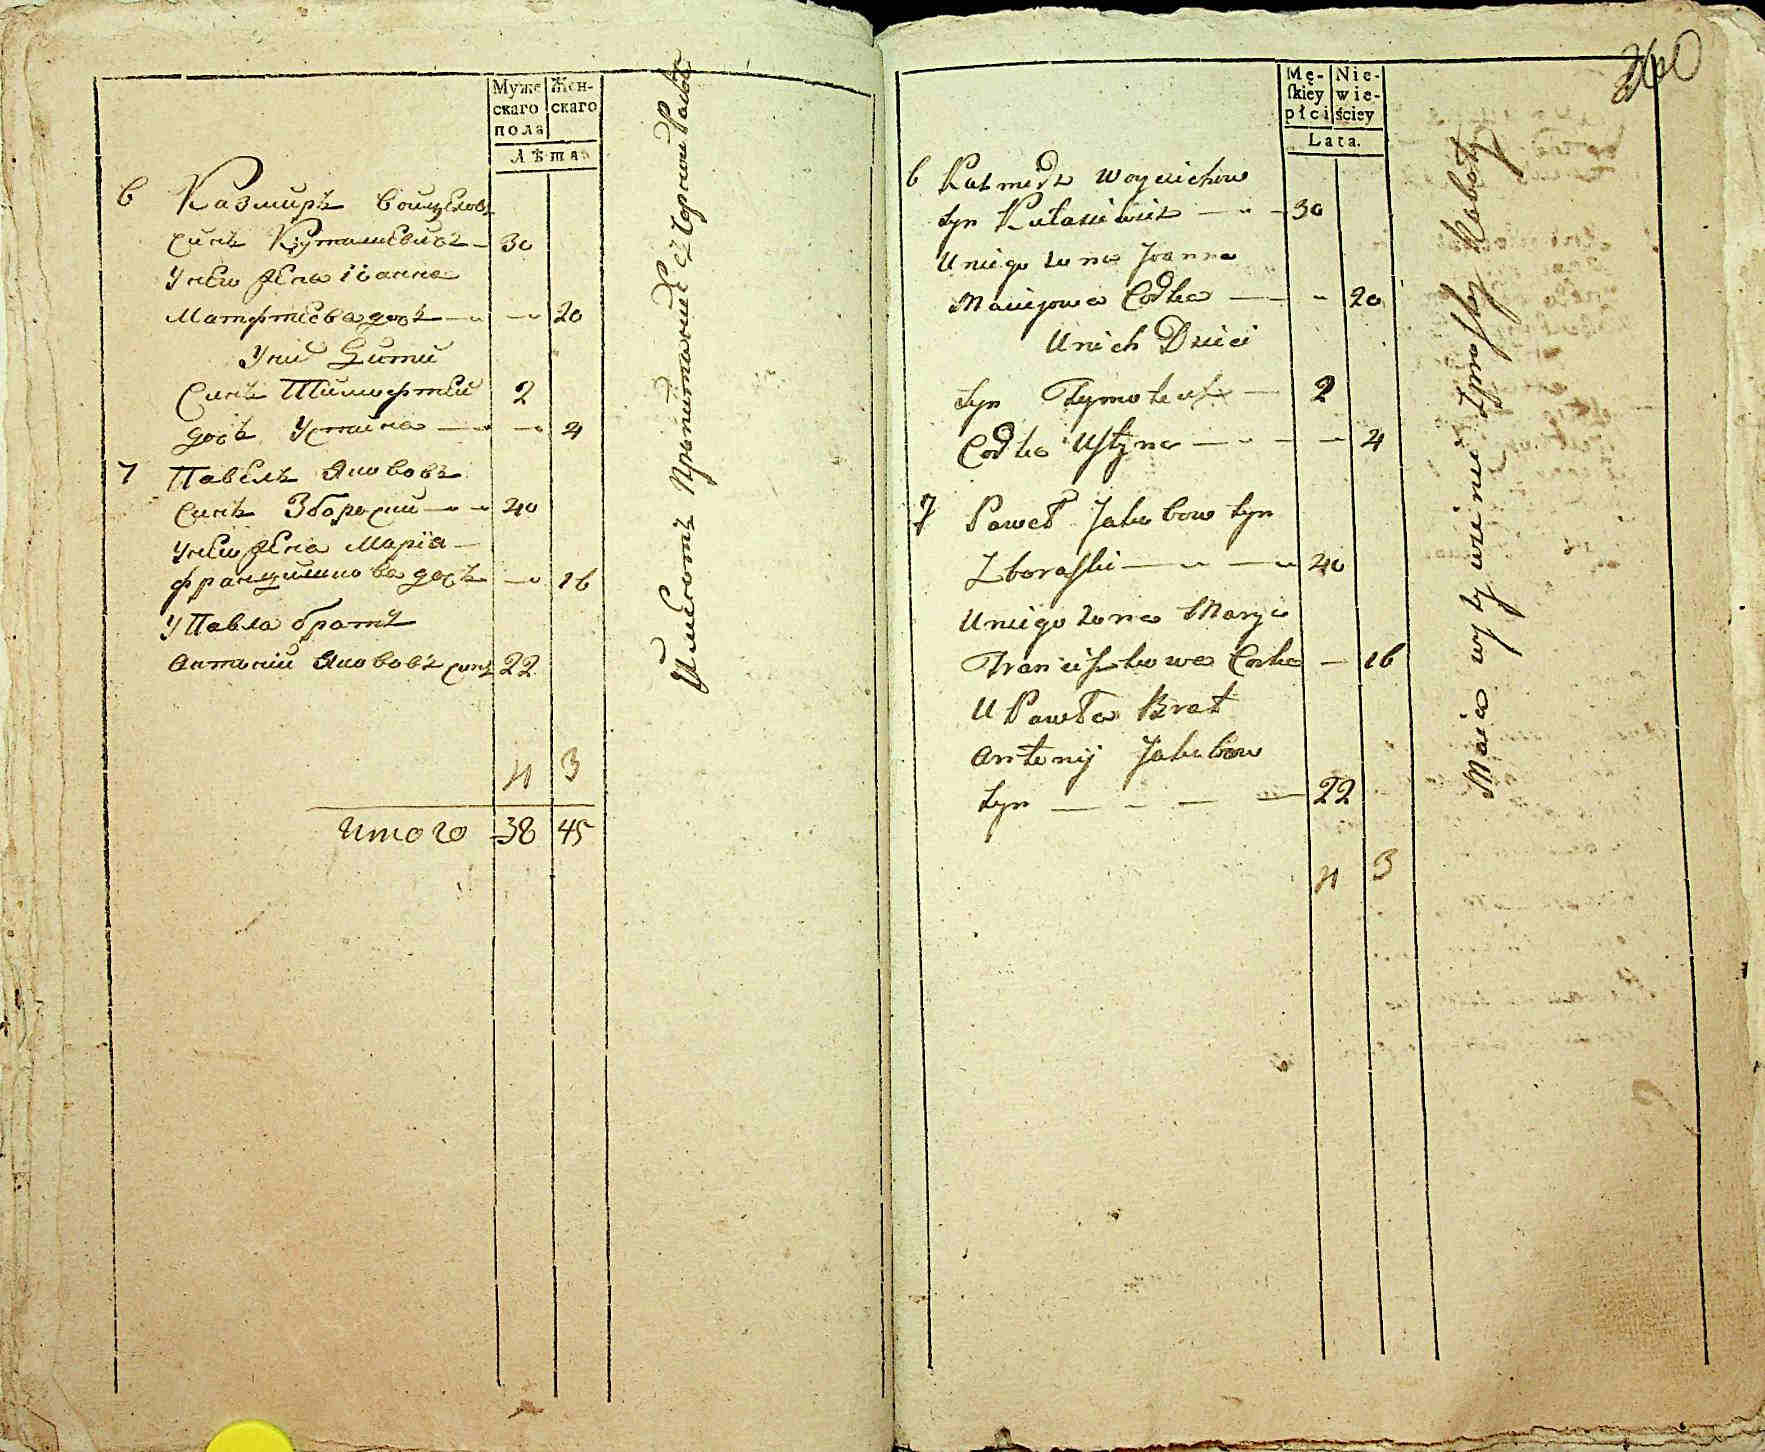 Муже Жен-
скаго скаго
пола
Лѣта
6 Казмиръ Войцеховъ
синъ Куташевичъ 30
Унею жена Иоанна
Матфѣева дочь 20
Уних Дити
Синъ Тимофтей 2
дочь Устина 4
7 Павелъ Яковов
синъ Зборскии 40
Унею жена Мария
францишкова дочь 16
У Павла братъ
Антоний Яковов синъ 22
4 3
Итого 38 45
Имеютъ Пропитание с Чорной Работы
260
Mę- Nie-
ſkiey wie-
płci ściey
Lata.
6 Kazmierz Woyciechow
Syn Kutasiewicz 30
U niego żona Joanna
Macieiowa Codka 20
U nich Dzieci
Syn Tymoteusz 2
Codka Ustyna 4
7 Paweł Jakubow Syn
Zboraſki 40
U niego żona Marya
Franciszkowa Corka 16
U Pawła Brat
Antonij Jakubow
Syn 22
4 3
Maią wyżywienie z prostey Roboty